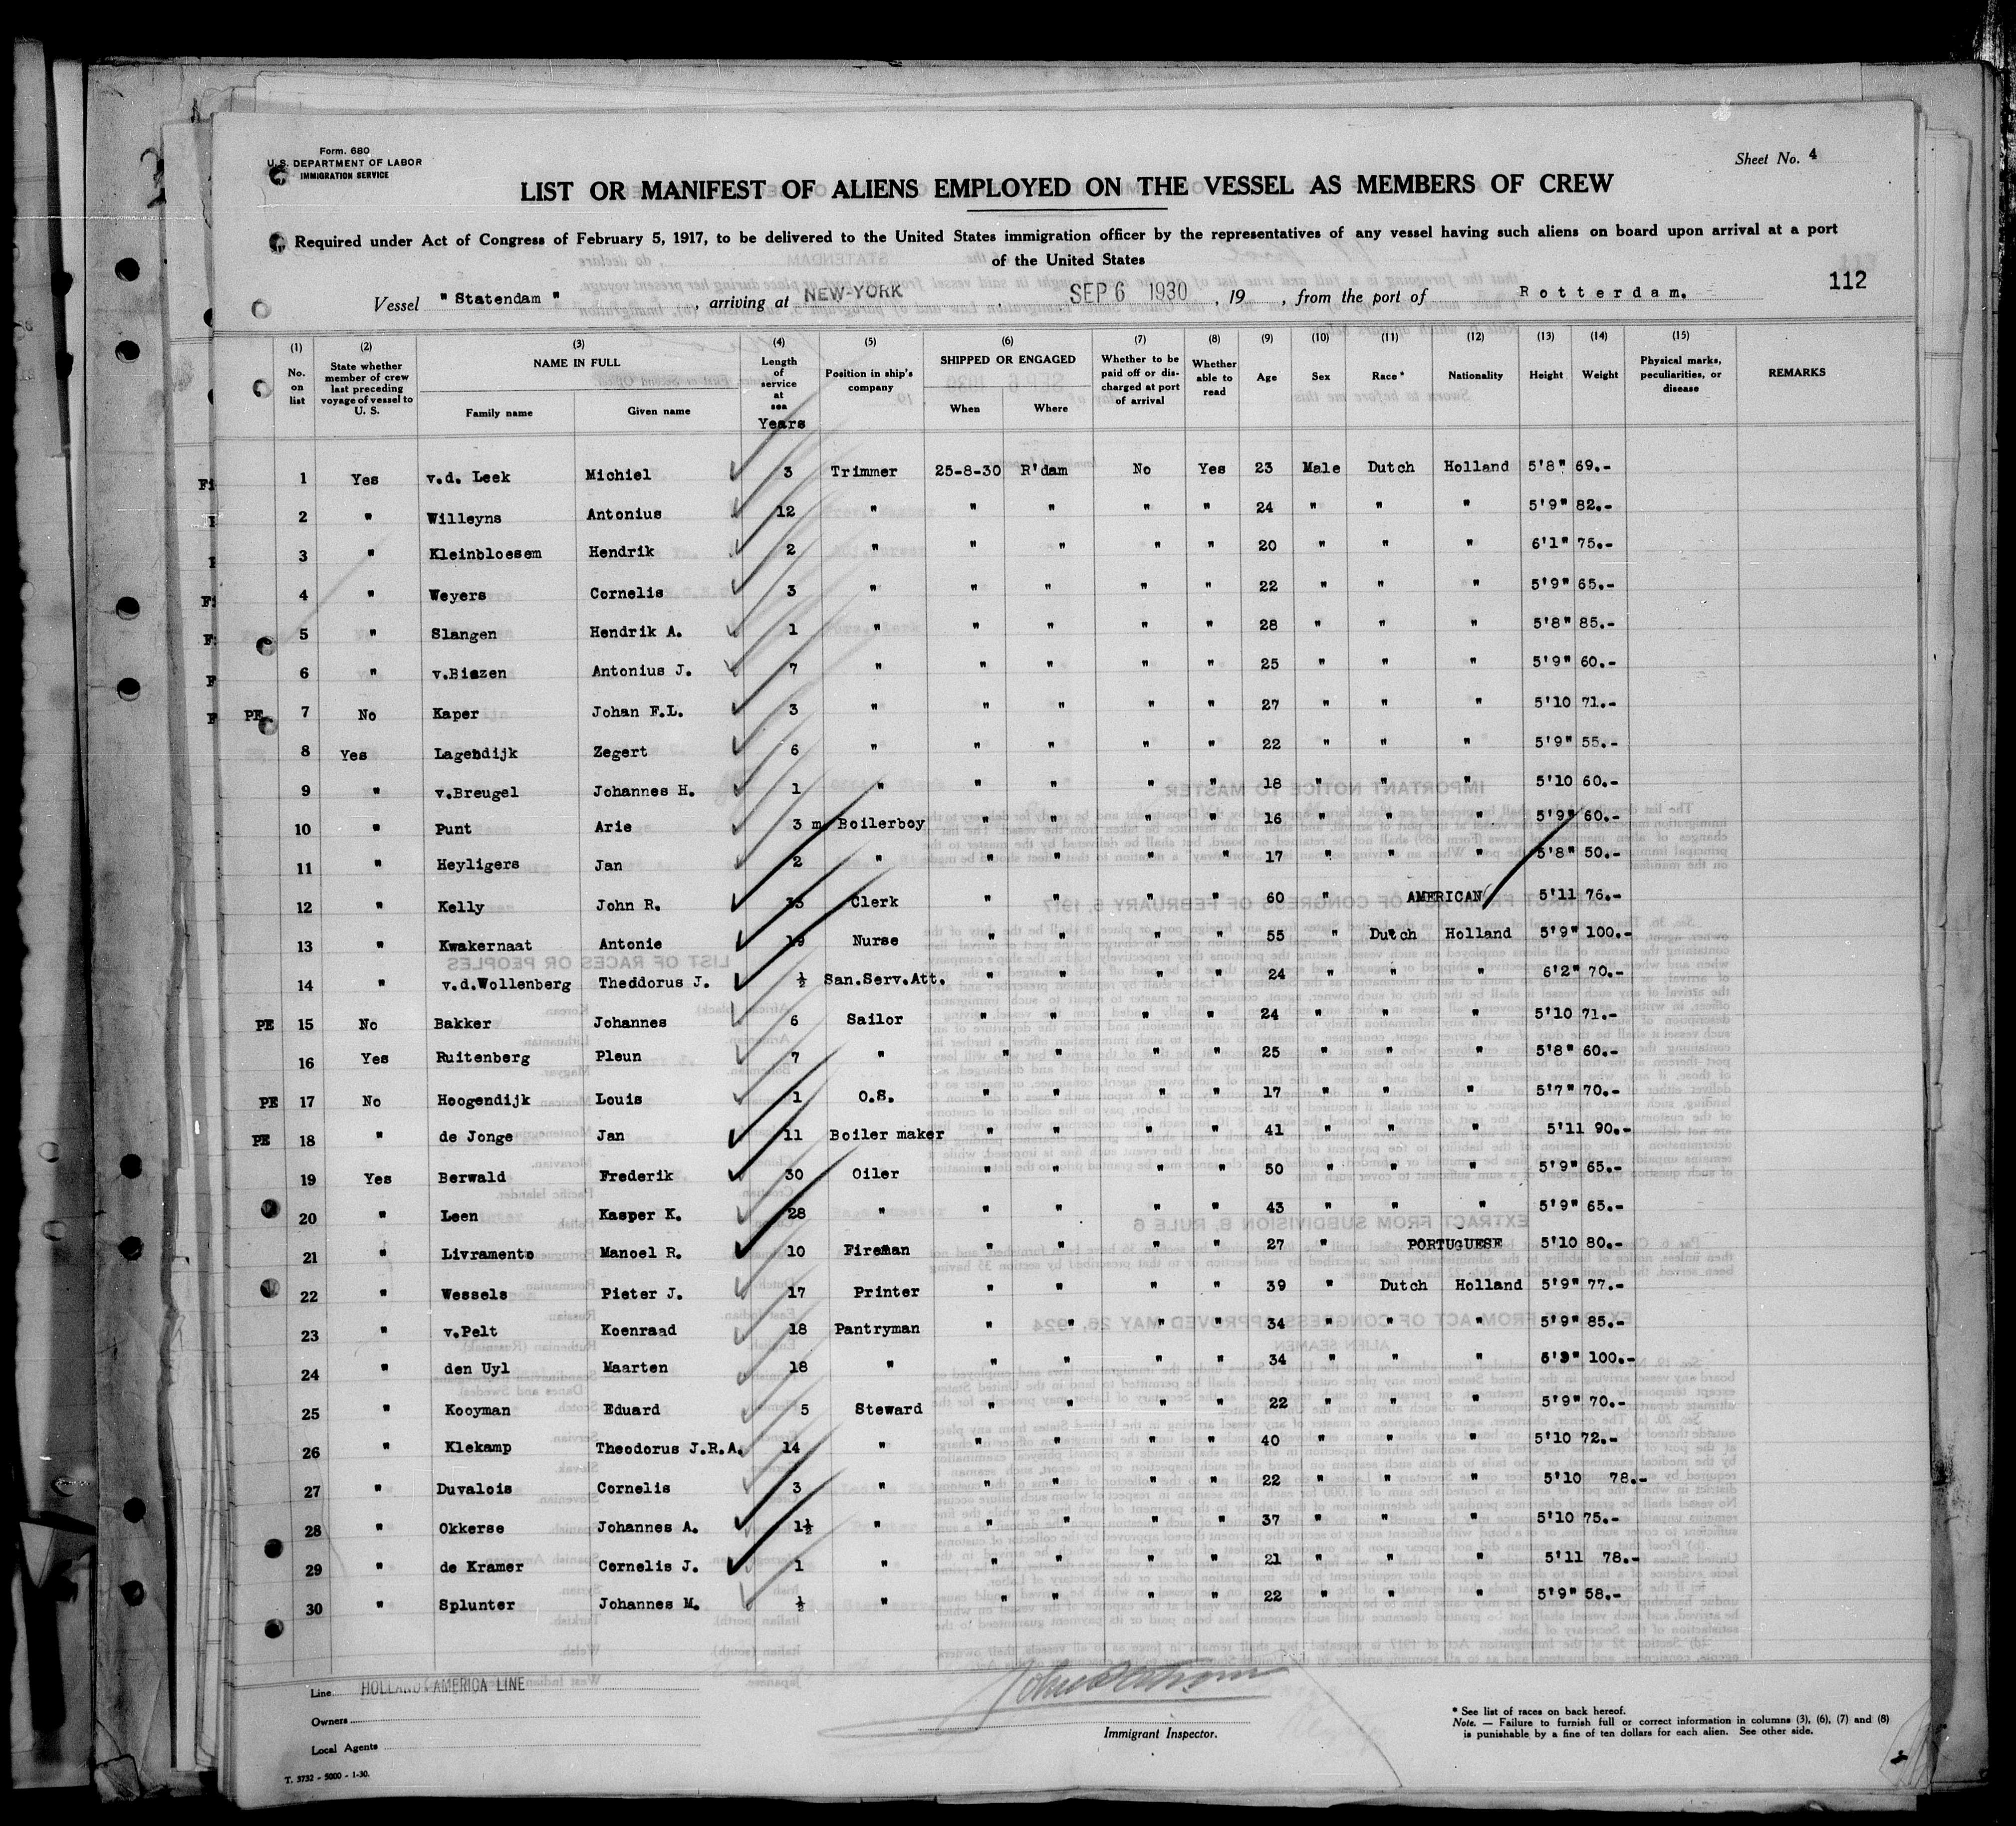 Form. 680
U. S. DEPARTMENT OF LABOR
IMMIGRATION SERVICE
Sheet No. 4
LIST OR MANIFEST OF ALIENS EMPLOYED ON THE VESSEL AS MEMBERS OF CREW
Required under Act of Congress of February 5, 1917, to be delivered to the United States immigration officer by the representatives of any vessel having such aliens on board upon arrival at a port
of the United States
112
Vessel "Statendam", arriving at NEW-YORK SEP 6 1930, 19 , from the port of Rotterdam.
(1) No. on list (2) State whether member of crew last preceding voyage of vessel to U. S. (3) NAME IN FULL Family name Given name (4) Length of service at sea Years (5) Position in ship's company (6) SHIPPED OR ENGAGED When Where (7) Whether to be paid off or discharged at port of arrival (8) Whether able to read (9) Age (10) Sex (11) Race* (12) Nationality (13) Height (14) Weight (15) Physical marks, peculiarities, or disease REMARKS
1 Yes v.d. Leek Michiel 3 Trimmer 25-8-30 R'dam No Yes 23 Male Dutch Holland 5'8" 69.-
2 " Willeyns Antonius 12 " " " " " 24 " " " 5'9" 82.-
3 " Kleinbloesem Hendrik 2 " " " " " 20 " " " 6'1" 75.-
4 " Weyers Cornelis 3 " " " " " 22 " " " 5'9" 65.-
5 " Slangen Hendrik A. 1 " " " " " 28 " " " 5'8" 85.-
6 " v.Biezen Antonius J. 7 " " " " " 25 " " " 5'9" 60.-
PE 7 No Kaper Johan F.L. 3 " " " " " 27 " " " 5'10 71.-
8 Yes Lagendijk Zegert 6 " " " " " 22 " " " 5'9" 55.-
9 " v.Breugel Johannes H. 1 " " " " " 18 " " " 5'10 60.-
10 " Punt Arie 3 m Boilerboy " " " " 16 " " " 5'9" 60.-
11 " Heyligers Jan 2 " " " " " 17 " " " 5'8" 50.-
12 " Kelly John R. 35 Clerk " " " " 60 " AMERICAN 5'11 76.-
13 " Kwakernaat Antonie 19 Nurse " " " " 55 " Dutch Holland 5'9" 100.-
14 " v.d.Wollenberg Theddorus J. ½ San.Serv.Att. " " " " 24 " " " 6'2" 70.-
PE 15 No Bakker Johannes 6 Sailor " " " " 24 " " " 5'10 71.-
16 Yes Ruitenberg Pleun 7 " " " " " 25 " " " 5'8" 60.-
PE 17 No Hoogendijk Louis 1 O.S. " " " " 17 " " " 5'7" 70.-
PE 18 " de Jonge Jan 11 Boiler maker " " " " 41 " " " 5'11 90.-
19 Yes Berwald Frederik 30 Oiler " " " " 50 " " " 5'9" 65.-
20 " Leen Kasper K. 28 " " " " " 43 " " " 5'9" 65.-
21 " Livramento Manoel R. 10 Fireman " " " " 27 " PORTUGUESE 5'10 80.-
22 " Wessels Pieter J. 17 Printer " " " " 39 " Dutch Holland 5'9" 77.-
23 " v.Pelt Koenraad 18 Pantryman " " " " 34 " " " 5'9" 85.-
24 " den Uyl Maarten 18 " " " " " 34 " " " 100.-
25 " Kooyman Eduard 5 Steward " " " " 22 " " " 5'9" 70.-
26 " Klekamp Theodorus J.R.A. 14 " " " " " 40 " " " 5'10 72.-
27 " Duvalois Cornelis 3 " " " " " 22 " " " 5'10 78.-
28 " Okkerse Johannes A. 1½ " " " " " 37 " " " 5'10 75.-
29 " de Kramer Cornelis J. 1 " " " " " 21 " " " 5'11 78.-
30 " Splunter Johannes M. ½ " " " " " 22 " " " 5'9" 58.-
Line HOLLAND-AMERICA LINE
Owners
Local Agents
T. 3732 - 5000 - 1-30.
Immigrant Inspector.
* See list of races on back hereof.
Note. — Failure to furnish full or correct information in columns (3), (6), (7) and (8)
is punishable by a fine of ten dollars for each alien. See other side.